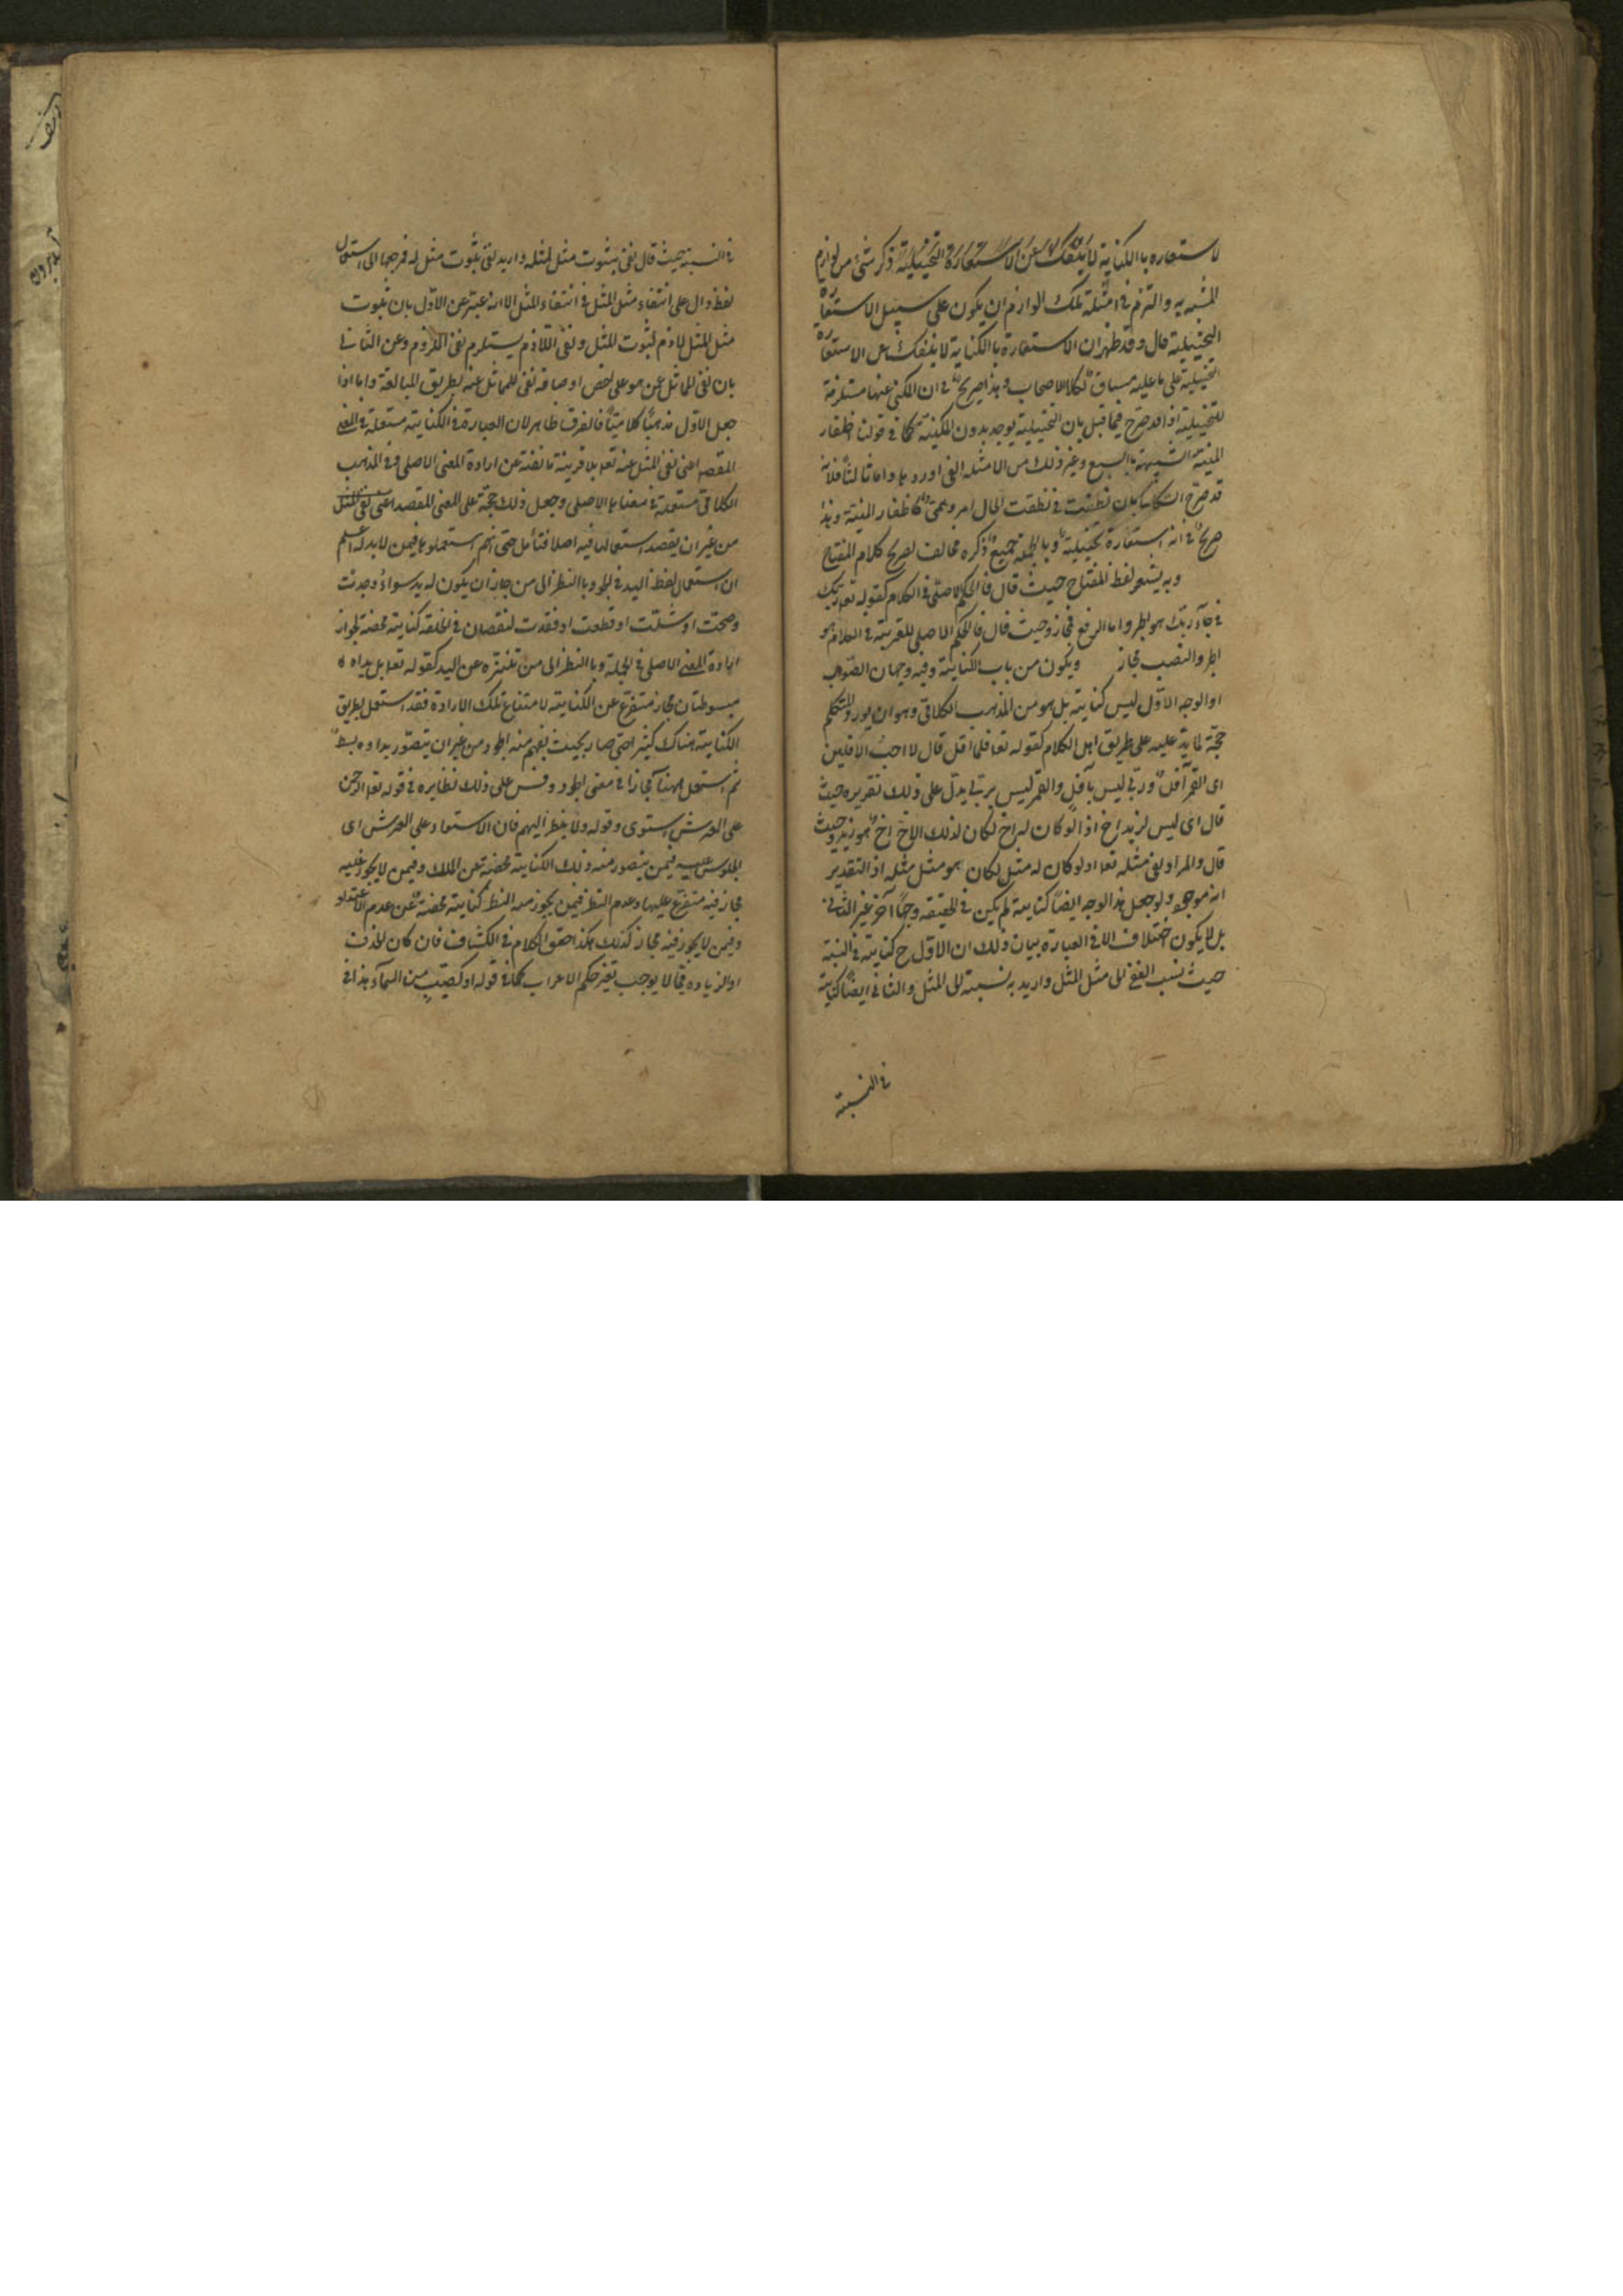 لاستعاره بالكناية لا ينفك عن الاستعارة التخييلية ذكر شئ من لوازم
المشبه به والتزم فى امثلة تلك اللوازم ان يكون على سبيل الاستعارة
التخييلية قال وقد ظهر ان الاستعارة بالكناية لا ينفك عن الاستعارة
التخييلية على ما عليه سياق كلام الاصحاب وهذا صريح فى ان المكنى عنها مستلزمة
للتخييلية اذ قد صرح فيما قبل بان التخييلية يوجد بدون المكنية كما فى قولنا اظفار
المنية الشبيهة بالسبع وغير ذلك من الامثلة التى اوردها واما ثالثا فلانه
قد صرح ان نطقت فى نطقت الحال امر وهمى كاظفار المنية وهذا
صريح فى انه استعارة تخييلية وبالجملة جميع ما ذكره مخالف لصريح كلام المفتاح
وبه يشعر لفظ المفتاح حيث قال فالحكم الاصلى فى الكلام لقوله تعا ربك
فى جاء ربك هو الجر واما الرفع فمجاز وحيث قال فالحكم الاصلى للقرية فى الكلام هو
الجر والنصب مجاز ويكون من باب الكناية وفيه وجهان الصواب
او الوجه الاول ليس كناية بل هو من المذهب الكلامى وهو ان يورد المتكلم
حجة لما يدعيه على طريق اهل الكلام كقوله تعا فلما افل قال لا احب الآفلين
اى القمر آفل وربى ليس بآفل والقمر ليس بربى يدل على ذلك تقريره حيث
قال اى ليس لزيد اخ اذ لو كان له اخ لكان لذلك الاخ اخ هو زيد وحيث
قال والمراد نفى مثله تعا اذ لو كان له مثل لكان هو مثل مثله اذ التقدير
انه موجود ولو جعل هذا الوجه ايضا كناية لم يكن فى الحقيقة وجها آخر غير الثانى
بل لا يكون اختلاف الا فى العبارة بيان ذلك ان الاول ح كناية فى النسبة
حيث نسب النفى الى مثل المثل واريد به نسبته الى المثل والثانى ايضا كناية
فى النسبة
فى النسبة حيث قال نفى ثبوت مثل لمثله واريد نفى ثبوت مثل له فمرجعهما الى استعمال
لفظ دال على انتفاء مثل المثل فى انتفاء المثل الا انه عبر عن الاول بان ثبوت
مثل المثل لازم لثبوت المثل ونفى اللازم يستلزم نفى الملزوم وعن الثانى
بان نفى المماثل عن هو على اخص اوصافه نفى للمماثل عنه بطريق المبالغة واما اذا
جعل الاول مذهبا كلاميا فالفرق ظاهر لان العبارة فى الكناية مستعملة فى المعنى
المقصد اعنى نفى المثل عنه تعا بلا قرينة مانعة عن ارادة المعنى الاصلى وفى المذهب
الكلامى مستعملة فى معناها الاصلى وجعل ذلك حجة على المعنى المقصد اعنى نفى المثل
من غير ان يقصد استعمالها فيه اصلا فتأمل حتى انهم استعملوها فيمن لا يد له اعلم
ان استعمال لفظ اليد فى الجود بالنظر الى من جاز ان يكون له يد سواء وجدت
وصحت او شلت او قطعت او فقدت لنقصان فى الخلقة كناية محضة لجواز
ارادة المعنى الاصلى فى الجملة وبالنظر الى من تنزه عن اليد كقوله تعا بل يداه
مبسوطتان مجاز متفرع عن الكناية لامتناع تلك الارادة فقد استعمل بطريق
الكناية هناك كثيرا حتى صار بحيث يفهم منه الجود من غير ان يتصور يد او بسط
ثم استعمل ههنا مجازا فى معنى الجود وقس على ذلك نظايره فى قوله تعا الرحمن
على العرش استوى وقوله ولا ينظر اليهم فان الاستواء على العرش اى
الجلوس عليه فيمن يتصور منه ذلك الكناية محضة عن الملك وفيمن لا يجوز عليه
مجاز فيه متفرع عليها وعدم النظر فيمن يجوز منه النظر كناية محضة عن عدم الاعتداد
وفيمن لا يجوز فيه مجاز كذلك هكذا حقق الكلام فى الكشاف فان كان الحذف
او الزيادة مما لا يوجب تغير حكم الاعراب كما فى قوله او كصيب من السماء هذا فى